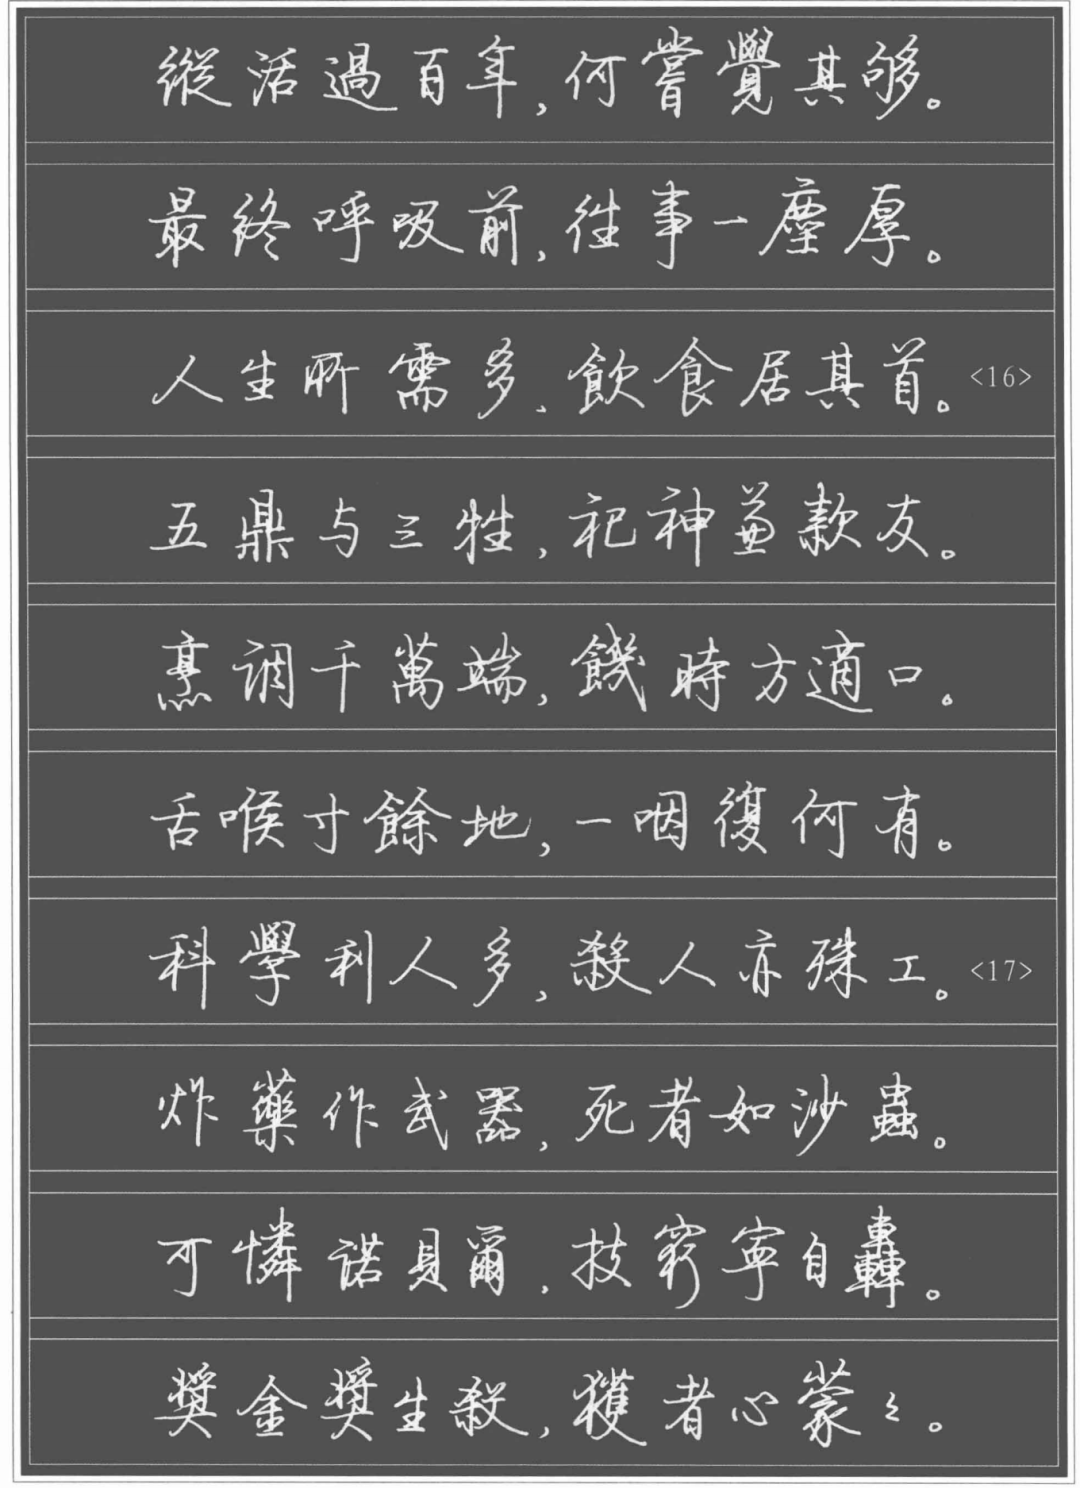 縱活過百年，何嘗覺其够。
最終呼吸前，往事一塵厚。
人生所需多，飲食居其首。<16>
五鼎与三牲，祀神兼款友。
烹調千萬端，饑時方適口。
舌喉寸餘地，一咽復何有。
科學利人多，殺人亦殊工。<17>
炸藥作武器，死者如沙蟲。
可憐諾貝爾，技窮寧自轟。
獎金獎生殺，獲者心蒙々。